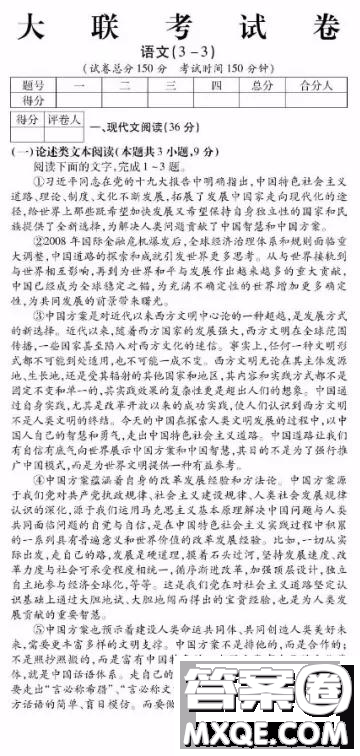 大联考试卷
语文(3-3)
(试卷总分150分 考试时间150分钟)
题号 一 二 三 四 总分 合分人
得分
得分 评卷人
一、现代文阅读(36分)
(一)论述类文本阅读(本题共3小题,9分)
阅读下面的文字,完成1~3题。
①习近平同志在党的十九大报告中明确指出,中国特色社会主义
道路、理论、制度、文化不断发展,拓展了发展中国家走向现代化的途
径,给世界上那些既希望加快发展又希望保持自身独立性的国家和民
族提供了全新选择,为解决人类问题贡献了中国智慧和中国方案。
②2008年国际金融危机爆发后,全球经济治理体系和规则面临重
大调整,中国道路的探索和成就引发世界更多思考。从与世界接轨到
与世界相互影响,再到为世界和平与发展作出越来越多的重大贡献,
中国已经成为全球稳定之锚,为充满不确定性的世界增加更多确定
性,为共同发展的前景带来曙光。
③中国方案是对近代以来西方文明中心论的一种超越,是发展方式
的新选择。近代以来,随着西方国家的发展强大,西方文明在全球范围
传播,一些国家甚至陷入对西方文化的迷信。事实上,任何一种文明形
式都不可能到处适用,也不可能一成不变。西方文明无论在其主体发源
地、生长地,还是受其辐射的其他国家和地区,其内容和实践方式都不是
固定不变和单一的,其实践效果的复杂性更是超出人们的想象。中国通
过自身实践,尤其是改革开放以来的成功实践,使人们认识到西方文明
不是人类文明的终结。今天的中国在探索人类文明发展的过程中,以中
国人自己的智慧和勇气,走出中国特色社会主义道路。中国道路让我们
有自信有底气向世界展示中国方案和中国智慧,其目的不是为了强行推
广中国模式,而是为世界文明提供一种有益参考。
④中国方案蕴涵着自身的改革发展经验和方法论。中国方案源
于我们党对共产党执政规律、社会主义建设规律、人类社会发展规律
认识的深化,源于我们运用马克思主义基本原理解决中国问题与人类
共同面临问题的自觉与自信,是在中国特色社会主义实践过程中积累
的一系列具有普遍意义和世界价值的改革发展经验。比如,一切从实
际出发,走自己的路,发展是硬道理,摸着石头过河,坚持发展速度、改
革力度与社会可承受程度相统一,循序渐进改革,加强顶层设计,独立
自主地参与经济全球化,等等。这是我们党在对社会主义道路坚定认
识基础上通过大胆地试、大胆地闯而得出的宝贵经验,也是为人类发
展贡献的重要智慧。
⑤中国方案也预示着建设人类命运共同体、共同创造人类美好未
来,需要更丰富多样的文明支撑。中国方案不是排他的,而是合作的;
不是照抄照搬的,而是富有中国特
体,就是中国话语体系。走自己的
要走出“言必称希腊”、“言必称文
方话语的简单、盲目模仿。而要做
答案圈
MXQE.COM